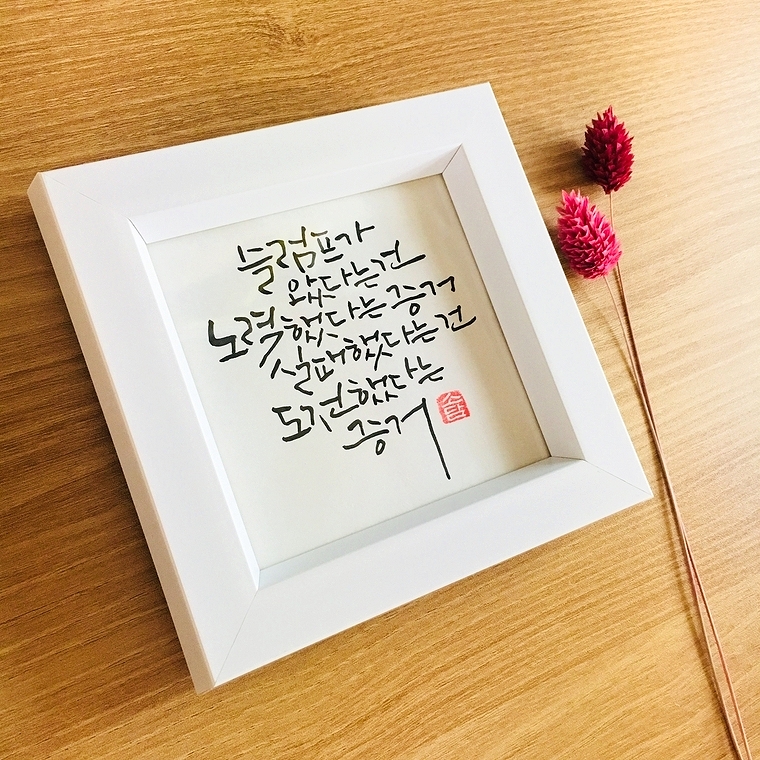 슬럼프가
왔다는건
노력했다는증거
실패했다는건
도전했다는
증거